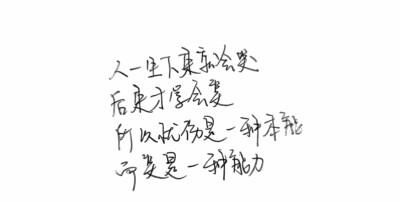 人一生下来就会哭
后来才学会笑
所以忧伤是一种本能
而笑是一种能力